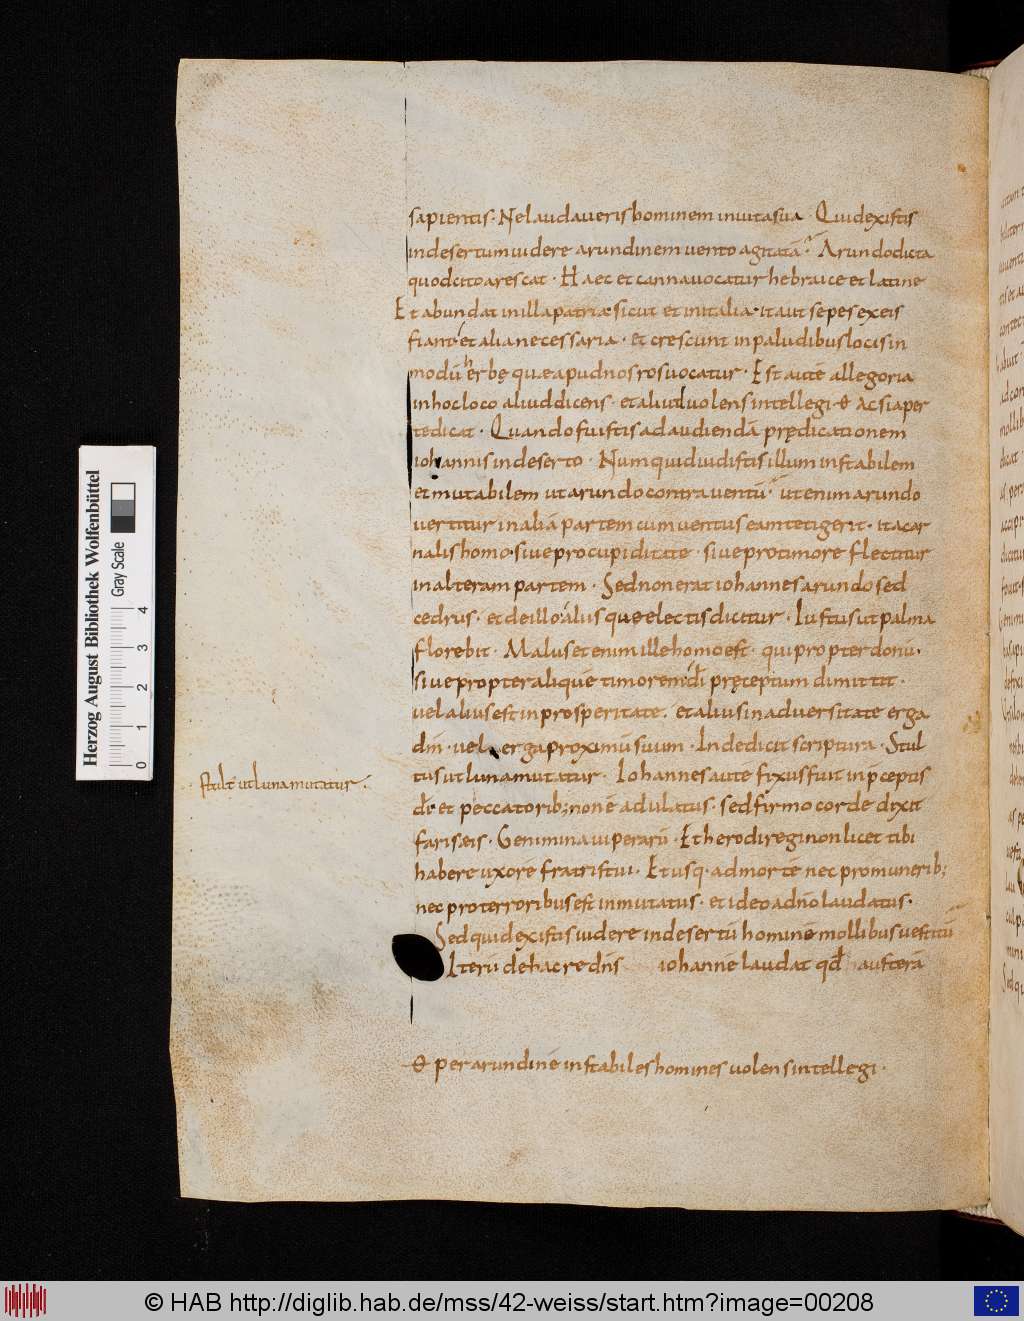 sapientis· Ne laudaveris hominem in vita sua· Quid existis
in desertum videre arundinem vento agitatā· Arundo dicta
quod cito arescat· Haec et canna vocatur hebraice et latine
Et abundat in illa patria· sicut et in italia· ita ut sepes ex eis
fiant· et alia necessaria· et crescunt in paludibus locis in
modū herbę quae apud nos ros vocatur· Est autē allegoria
in hoc loco aliud dicens· et aliud volens intellegi· ac si aper
te dicat· Quando fuistis ad audiendā prędicationem
iohannis in deserto· Numquid vidistis illum instabilem
et mutabilem ut arundo contra ventū· ut enim arundo
vertitur in aliā partem cum ventus eam tetigerit· ita car
nalis homo· sive pro cupiditate· sive pro timore flectitur
in alteram partem· Sed non erat iohannes arundo sed
cedrus· et de illo alusque electis dicitur· Iustus ut palma
florebit· Malus etenim ille homo est· qui propter donū·
sive propter aliquē timorem dī pręceptum dimittit·
vel alius est in prosperitate· et alius in adversitate erga
dm̄· vel erga proximū suum· Inde dicit scriptura· Stul
tus ut luna mutatur· Iohannes autē fixus fuit in p̄ceptis
dī· et peccatorib; non ē adulatus· sed firmo corde dixit
farisęis· Genimina viperarū· Et herodi regi non licet tibi
habere uxorē fratris tui· Et usq· ad mortē nec pro munerib;
nec pro terroribus est inmutatus· et ideo a dn̄o laudatus·
Sed quid existis videre in desertū hominē mollibus vestitū
Iterū de hac re dn̄s iohannē laudat qđ austerā
per arundinē instabiles homines volens intellegi·
stult ut luna mutatur·
Herzog August Bibliothek Wolfenbüttel
Gray Scale
0 1 2 3 4
© HAB http://diglib.hab.de/mss/42-weiss/start.htm?image=00208